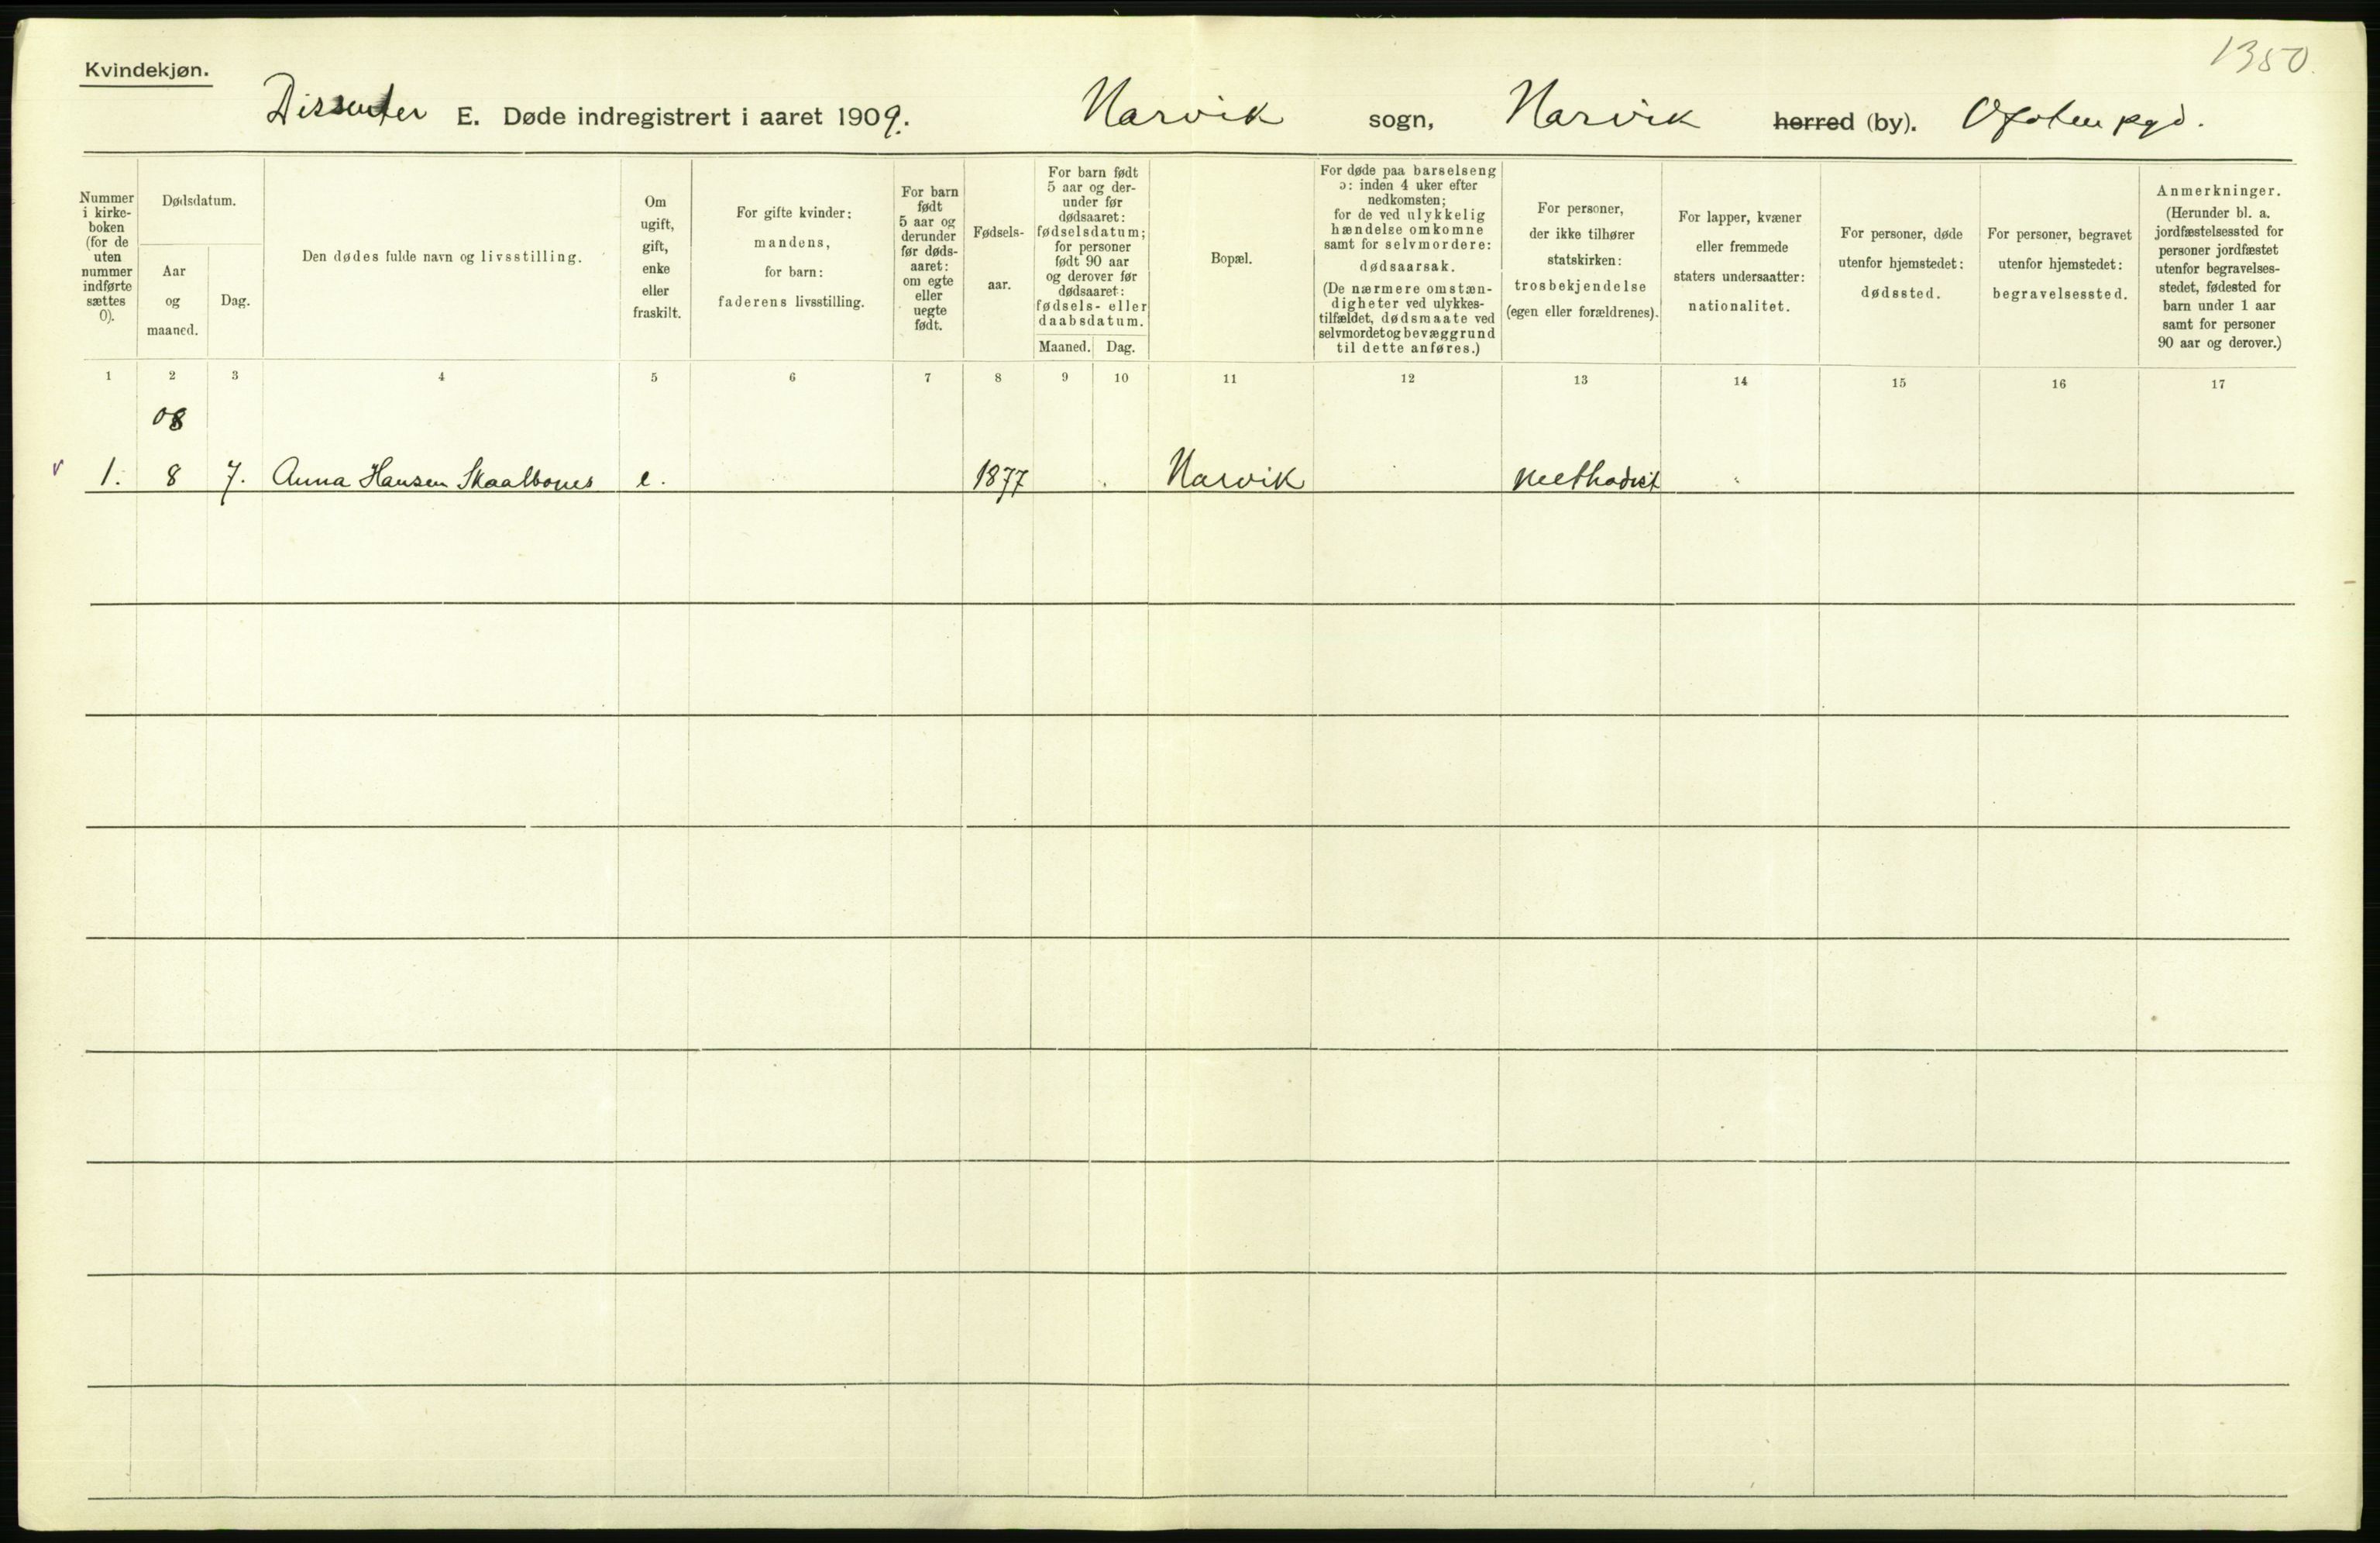 1350.
Kvindekjøn.
Dissenter E. Døde indregistrert i aaret 1909. Narvik sogn, Narvik herred (by). Ofoten pgd.
Nummer
i kirke-
boken
(for de
uten
nummer
indførte
sættes
0).
Dødsdatum.
Aar
og
maaned.
Dag.
Den dødes fulde navn og livsstilling.
Om
ugift,
gift,
enke
eller
fraskilt.
For gifte kvinder:
mandens,
for barn:
faderens livsstilling.
For barn
født
5 aar og
derunder
før døds-
aaret:
om egte
eller
uegte
født.
Fødsels-
aar.
For barn født
5 aar og der-
under før
dødsaaret:
fødselsdatum;
for personer
født 90 aar
og derover før
dødsaaret:
fødsels- eller
daabsdatum.
Maaned. Dag.
Bopæl.
For døde paa barselseng
ɔ: inden 4 uker efter
nedkomsten;
for de ved ulykkelig
hændelse omkomne
samt for selvmordere:
dødsaarsak.
(De nærmere omstæn-
digheter ved ulykkes-
tilfældet, dødsmaate ved
selvmordet og bevæggrund
til dette anføres.)
For personer,
der ikke tilhører
statskirken:
trosbekjendelse
(egen eller forældrenes).
For lapper, kvæner
eller fremmede
staters undersaatter:
nationalitet.
For personer, døde
utenfor hjemstedet:
dødssted.
For personer, begravet
utenfor hjemstedet:
begravelsessted.
Anmerkninger.
(Herunder bl. a.
jordfæstelsessted for
personer jordfæstet
utenfor begravelses-
stedet, fødested for
barn under 1 aar
samt for personer
90 aar og derover.)
1 2 3 4 5 6 7 8 9 10 11 12 13 14 15 16 17
08
1. 8 7. Anna Hansen Skaalbones e. 1877 Narvik Methodist